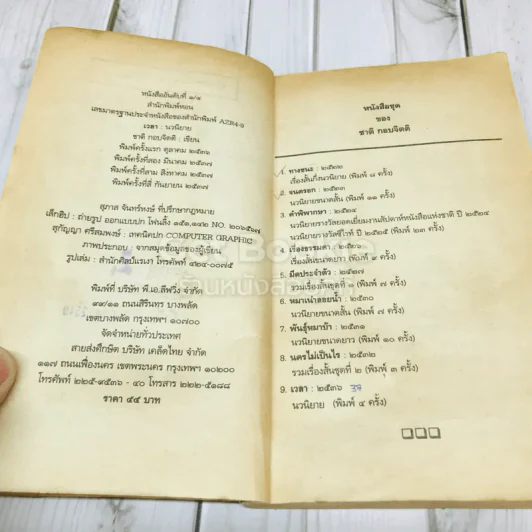 หนังสืออันดับที่ ๑/๔
สำนักพิมพ์หอน
เลขมาตรฐานประจำหนังสือของสำนักพิมพ์ A2R4-9
เวลา : นวนิยาย
ชาติ กอบจิตติ : เขียน
พิมพ์ครั้งแรก ตุลาคม ๒๕๓๖
พิมพ์ครั้งที่สอง มีนาคม ๒๕๓๗
พิมพ์ครั้งที่สาม สิงหาคม ๒๕๓๗
พิมพ์ครั้งที่สี่ กันยายน ๒๕๓๗
สุภาส จันทร์หงษ์ ที่ปรึกษากฎหมาย
เล็กฮิป : ถ่ายรูป ออกแบบปก โฟนลิ้ง ๑๕๑,๑๕๒ NO. ๒๐๖๕๗๒
สุกัญญา ศรีสมพงษ์ : เทคนิคปก COMPUTER GRAPHIC
ภาพประกอบ : จากสมุดข้อมูลของผู้เขียน
รูปเล่ม : สำนักศิลป์แรเงา โทรศัพท์ ๔๒๔-๐๐๗๕
พิมพ์ที่ บริษัท พี.เอ.ลีฟวิ่ง จำกัด
๙๙/๑๑ ถนนสิรินธร บางพลัด
เขตบางพลัด กรุงเทพฯ ๑๐๗๐๐
จัดจำหน่ายทั่วประเทศ
สายส่งศึกษิต บริษัท เคล็ดไทย จำกัด
๑๑๗ ถนนเฟื่องนคร เขตพระนคร กรุงเทพฯ ๑๐๒๐๐
โทรศัพท์ ๒๒๕-๙๕๓๖ - ๔๐ โทรสาร ๒๒๒-๕๑๘๘
ราคา ๕๕ บาท
หนังสือชุด
ของ
ชาติ กอบจิตติ
1. ทางชนะ : ๒๕๒๒
เรื่องสั้นกึ่งนวนิยาย (พิมพ์ ๘ ครั้ง)
2. จนตรอก : ๒๕๒๓
นวนิยายขนาดสั้น (พิมพ์ ๑๑ ครั้ง)
3. คำพิพากษา : ๒๕๒๔
นวนิยายรางวัลยอดเยี่ยมงานสัปดาห์หนังสือแห่งชาติ ปี ๒๕๒๕
นวนิยายรางวัลซีไรท์ ปี ๒๕๒๕ (พิมพ์ ๒๓ ครั้ง)
4. เรื่องธรรมดา : ๒๕๒๖
เรื่องสั้นขนาดยาว (พิมพ์ ๙ ครั้ง)
5. มีดประจำตัว : ๒๕๒๗
รวมเรื่องสั้นชุดที่ ๑
6. หมาเน่าลอยน้ำ : ๒๕๓๐
นวนิยายขนาดสั้น (พิมพ์ ๗ ครั้ง)
7. พันธุ์หมาบ้า : ๒๕๓๑
นวนิยายขนาดยาว (พิมพ์ ๑๐ ครั้ง)
8. นครไม่เป็นไร : ๒๕๓๒
รวมเรื่องสั้นชุดที่ ๒ (พิมพ์ ๓ ครั้ง)
9. เวลา : ๒๕๓๖
นวนิยาย (พิมพ์ ๔ ครั้ง)